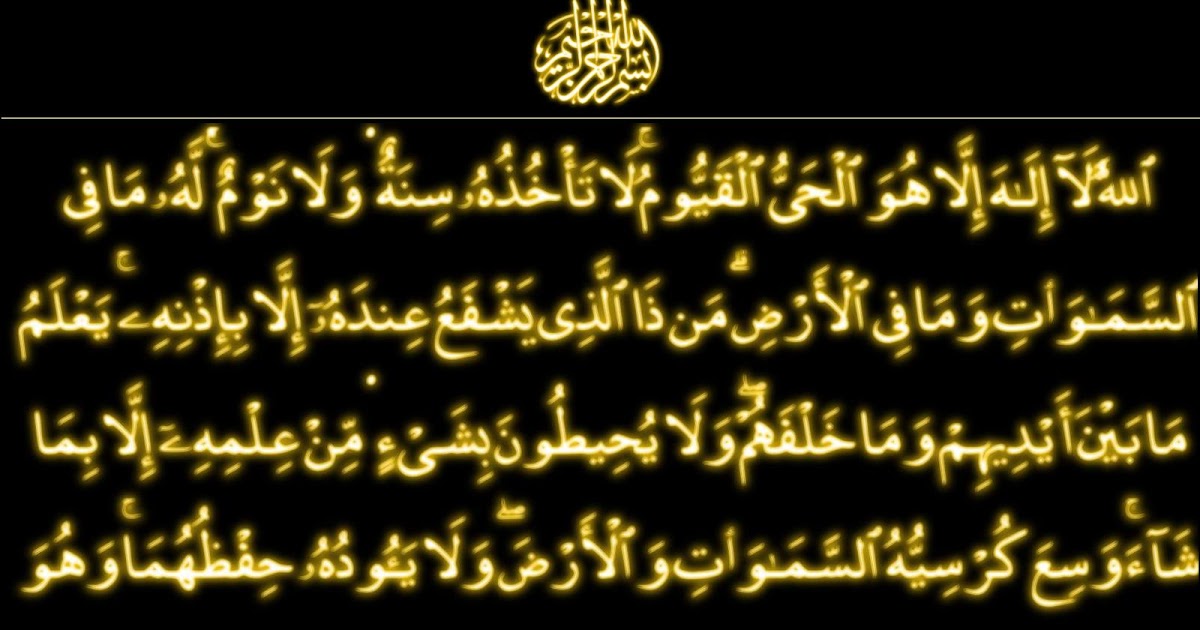 بسم الله الرحمن الرحيم
ٱللَّهُ لَآ إِلَـٰهَ إِلَّا هُوَ ٱلْحَىُّ ٱلْقَيُّومُ ۚ لَا تَأْخُذُهُۥ سِنَةٌۭ وَلَا نَوْمٌۭ ۚ لَّهُۥ مَا فِى
ٱلسَّمَـٰوَٰتِ وَمَا فِى ٱلْأَرْضِ ۗ مَن ذَا ٱلَّذِى يَشْفَعُ عِندَهُۥٓ إِلَّا بِإِذْنِهِۦ ۚ يَعْلَمُ
مَا بَيْنَ أَيْدِيهِمْ وَمَا خَلْفَهُمْ ۖ وَلَا يُحِيطُونَ بِشَىْءٍۢ مِّنْ عِلْمِهِۦٓ إِلَّا بِمَا
شَآءَ ۚ وَسِعَ كُرْسِيُّهُ ٱلسَّمَـٰوَٰتِ وَٱلْأَرْضَ ۖ وَلَا يَـُٔودُهُۥ حِفْظُهُمَا ۚ وَهُوَ